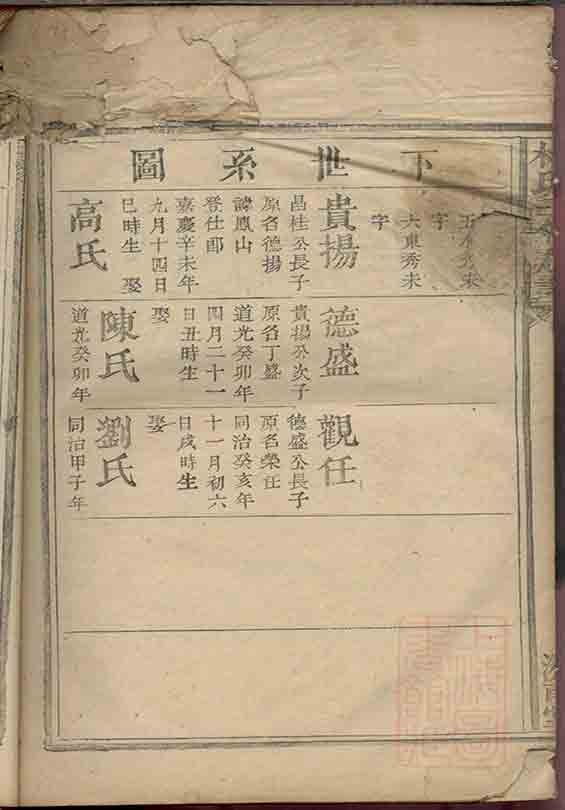 下世系圖
五東秀未
字
六東秀未
字
貴揚
昌桂公長子
原名德揚
諱鳳山
登仕郎
嘉慶辛未年
九月十四日
巳時生 娶
高氏
德盛
貴揚公次子
原名丁盛
道光癸卯年
四月二十一
日丑時生
娶
陳氏
道光癸卯年
觀任
德盛公長子
原名榮任
同治癸亥年
十一月初六
日戌時生
娶
劉氏
同治甲子年